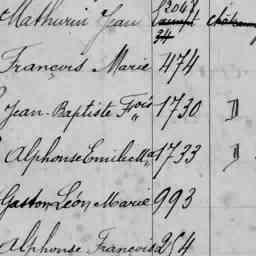 Mathurin Jean 1304
34
François Marie 474
Jean Baptiste Fçois 1730 D
Alphonse Emile Mie 1733
Gaston Léon Marie 993
Alphonse François 254